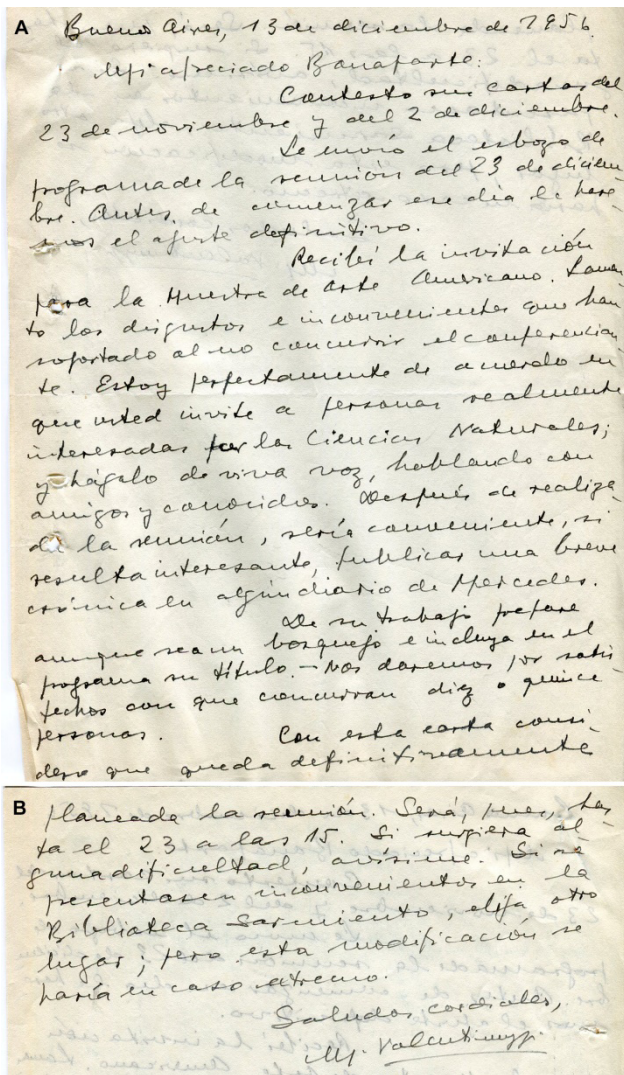 A
Buenos Aires, 13 de diciembre de 1956.
Mi apreciado Bonaparte:
Contesto sus cartas del
23 de noviembre y del 2 de diciembre.
Le envío el esbozo de
programa de la reunión del 23 de diciem-
bre. Antes de comenzar ese día le hare-
mos el ajuste definitivo.
Recibí la invitación
para la Muestra de Arte Americano. Lamen-
to los disgustos e inconvenientes que han
soportado al no concurrir el conferencian-
te. Estoy perfectamente de acuerdo en
que usted invite a personas realmente
interesadas por las Ciencias Naturales;
y hágalo de viva voz, hablando con
amigos y conocidos. Después de realiza-
da la reunión, sería conveniente, si
resulta interesante, publicar una breve
crónica en algún diario de Mercedes.
De su trabajo prepare
aunque sea un bosquejo e incluya en el
programa su título. — Nos daremos por satis-
fechos con que concurran diez o quince
personas.
Con esta carta consi-
dero que queda definitivamente
B
planeada la reunión. Será, pues, has-
ta el 23 a las 15. Si surgiera al-
guna dificultad, avíseme. Si se
presentasen inconvenientes en la
Biblioteca Sarmiento, elija otro
lugar; pero esta modificación se
haría en caso extremo.
Saludos cordiales,
M. Valentinuzzi.